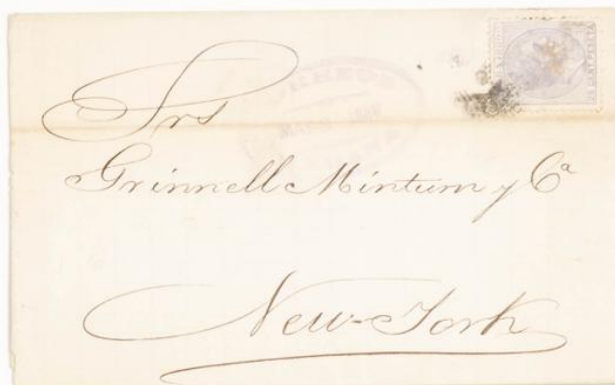 CORREOS
Srs
Grinnell Minturn y Cª
New-York